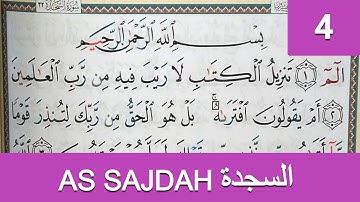 4
بِسْمِ ٱللَّهِ ٱلرَّحْمَٰنِ ٱلرَّحِيمِ
الٓمٓ ١ تَنزِيلُ ٱلْكِتَٰبِ لَا رَيْبَ فِيهِ مِن رَّبِّ ٱلْعَٰلَمِينَ
٢ أَمْ يَقُولُونَ ٱفْتَرَىٰهُ ۚ بَلْ هُوَ ٱلْحَقُّ مِن رَّبِّكَ لِتُنذِرَ قَوْمًا
AS SAJDAH السجدة